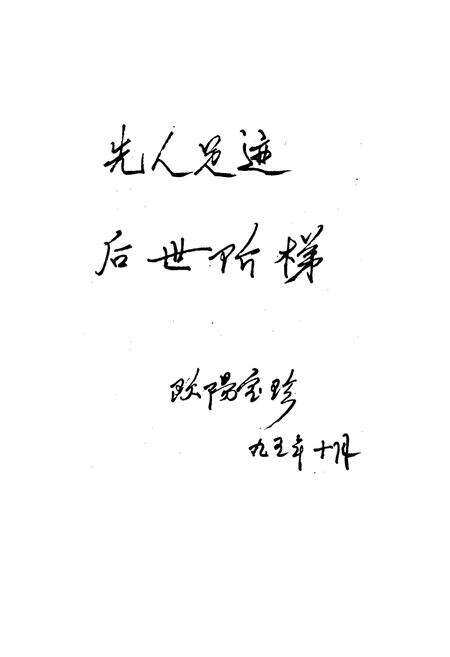 先人足迹
后世阶梯
欧阳宝珍
九五年十月